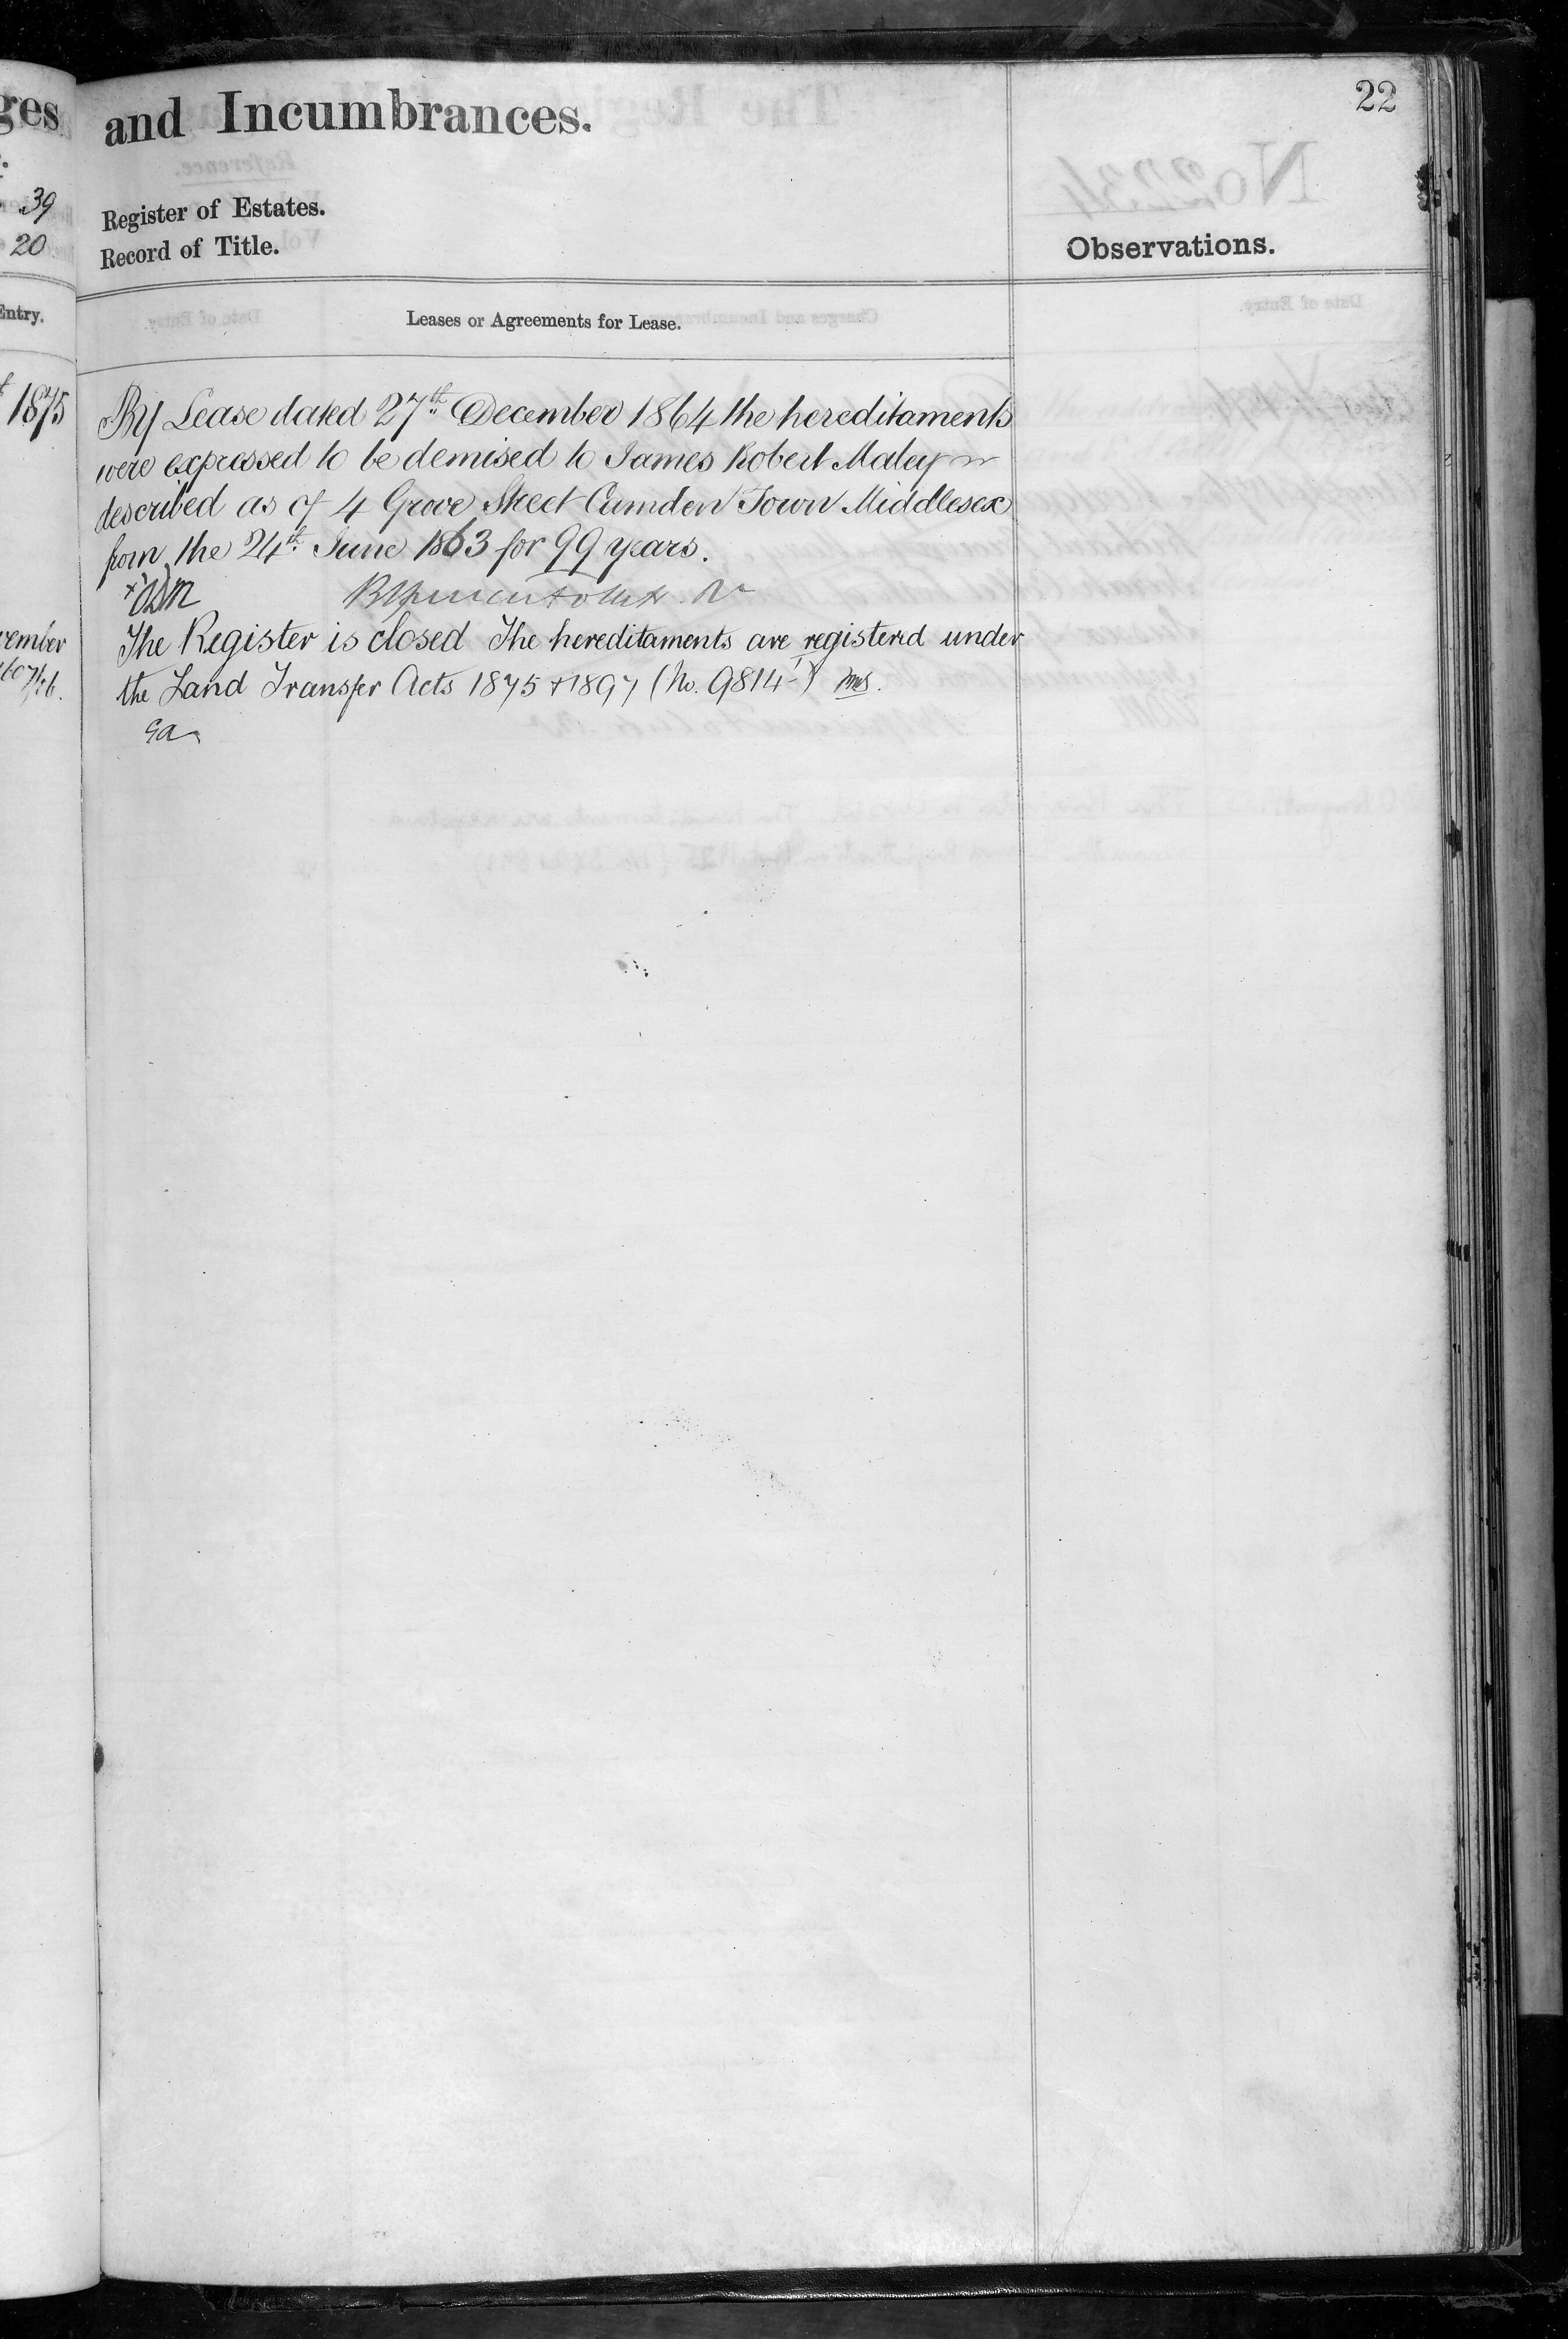 22
and Incumbrances.
Register of Estates.
Record of Title.
Observations.
Leases or Agreements for Lease.
By Lease dated 27th December 1864 the hereditaments
were expressed to be demised to James Robert Maley
described as of 4 Grove Street Camden Town Middlesex
from the 24th June 1863 for 99 years.
The Register is closed The hereditaments are registered under
the Land Transfer Acts 1875 + 1897 (No. 9814)
ges
39
20
Entry.
1875
vember